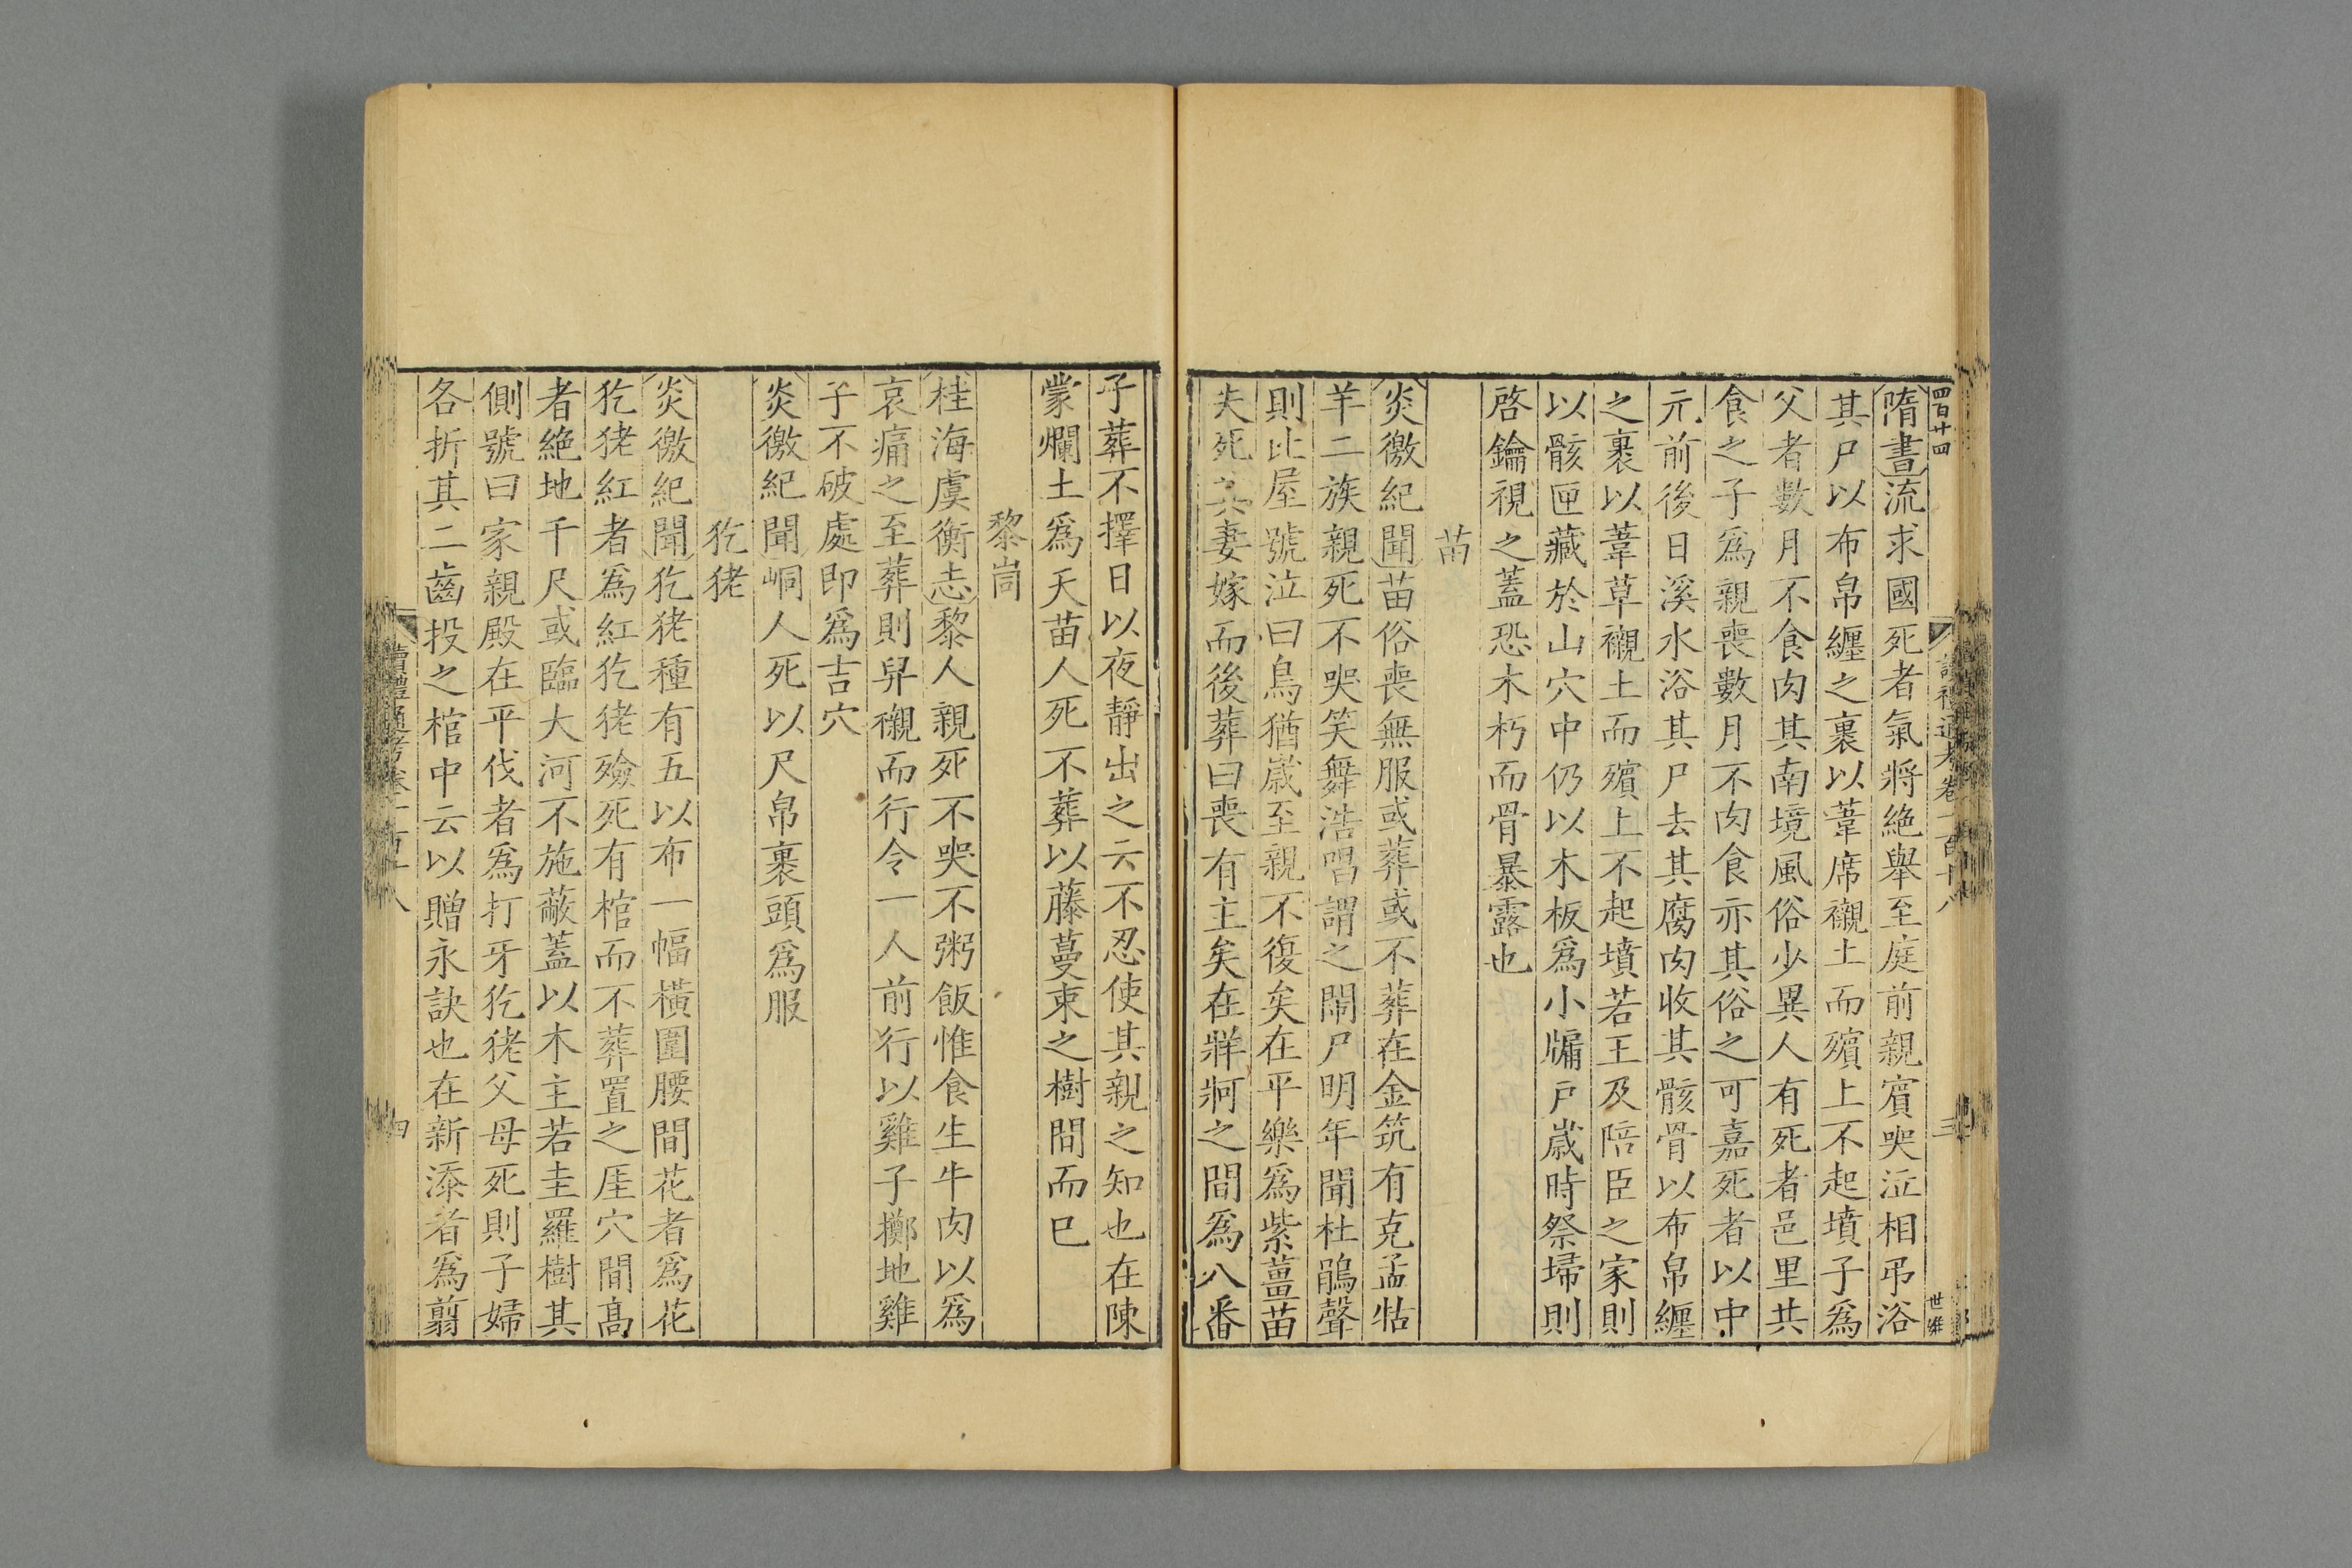 四百廿四
隋書流求國死者氣將絶舉至庭前親賓哭泣相弔浴
其尸以布帛纏之裹以葦席襯土而殯上不起墳子爲
父者數月不食肉其南境風俗少異人有死者邑里共
食之子爲親喪數月不肉食亦其俗之可嘉死者以中
元前後日溪水浴其尸去其腐肉收其骸骨以布帛纏
之裹以葦草襯土而殯上不起墳若王及陪臣之家則
以骸匣藏於山穴中仍以木板爲小牖戸歲時祭埽則
啓鑰視之蓋恐木朽而骨暴露也
苗
炎徼紀聞苗俗喪無服或葬或不葬在金筑有克孟牯
羊二族親死不哭笑舞浩唱謂之鬧尸明年聞杜鵑聲
則比屋號泣曰鳥猶歲至親不復矣在平樂爲紫薑苗
夫死其妻嫁而後葬曰喪有主矣在牂牁之間爲八番
子葬不擇日以夜靜出之云不忍使其親之知也在陳
蒙爛土爲夭苗人死不葬以藤蔓束之樹間而已
黎峝
桂海虞衡志黎人親死不哭不粥飯惟食生牛肉以爲
哀痛之至葬則舁櫬而行令一人前行以雞子擲地雞
子不破處即爲吉穴
炎徼紀聞峒人死以尺帛裹頭爲服
犵狫
炎徼紀聞犵狫種有五以布一幅橫圍腰間花者爲花
犵狫紅者爲紅犵狫殮死有棺而不葬置之厓穴間高
者絶地千尺或臨大河不施蔽蓋以木主若圭羅樹其
側號曰家親殿在平伐者爲打牙犵狫父母死則子婦
各折其二齒投之棺中云以贈永訣也在新添者爲翦
讀禮通考卷一百十八
四